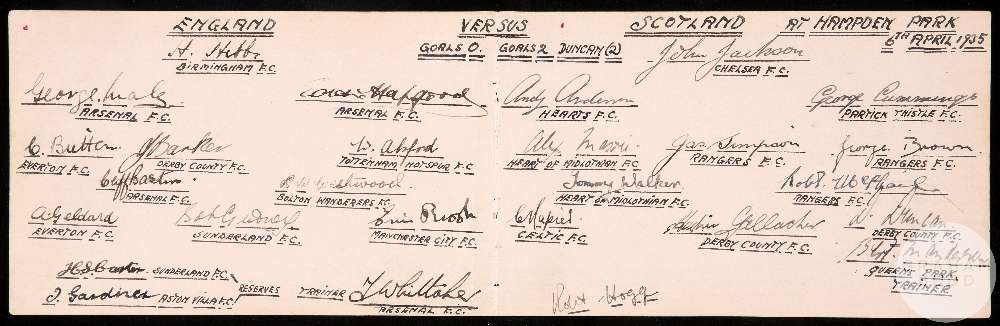 ENGLAND VERSUS SCOTLAND AT HAMPDEN PARK
GOALS 0. GOALS 2 DUNCAN (2) 6TH APRIL 1935
H. Hibbs John Jackson
BIRMINGHAM F.C. CHELSEA F.C.
George Male Hapgood Andy Anderson George Cummings
ARSENAL F.C. ARSENAL F.C. HEARTS F.C. PARTICK THISTLE F.C.
C. Britton J Barker W. Alsford Alex Massie Jas. Simpson George Brown
EVERTON F.C. DERBY COUNTY F.C. TOTTENHAM HOTSPUR F.C. HEART OF MIDLOTHIAN F.C. RANGERS F.C. RANGERS F.C.
Cliff Bastin R Westwood Tommy Walker Robt. McPhail
ARSENAL F.C. BOLTON WANDERERS F.C. HEART OF MIDLOTHIAN F.C. RANGERS F.C.
A Geldard Bob Gurney Eric Brook C Napier Hughie Gallacher D. Duncan
EVERTON F.C. SUNDERLAND F.C. MANCHESTER CITY F.C. CELTIC F.C. DERBY COUNTY F.C. DERBY COUNTY F.C.
H.S. Carter SUNDERLAND F.C. QUEENS PARK
J. Gardiner ASTON VILLA F.C. RESERVES TRAINER T Whittaker Robt Hogg TRAINER
ARSENAL F.C.